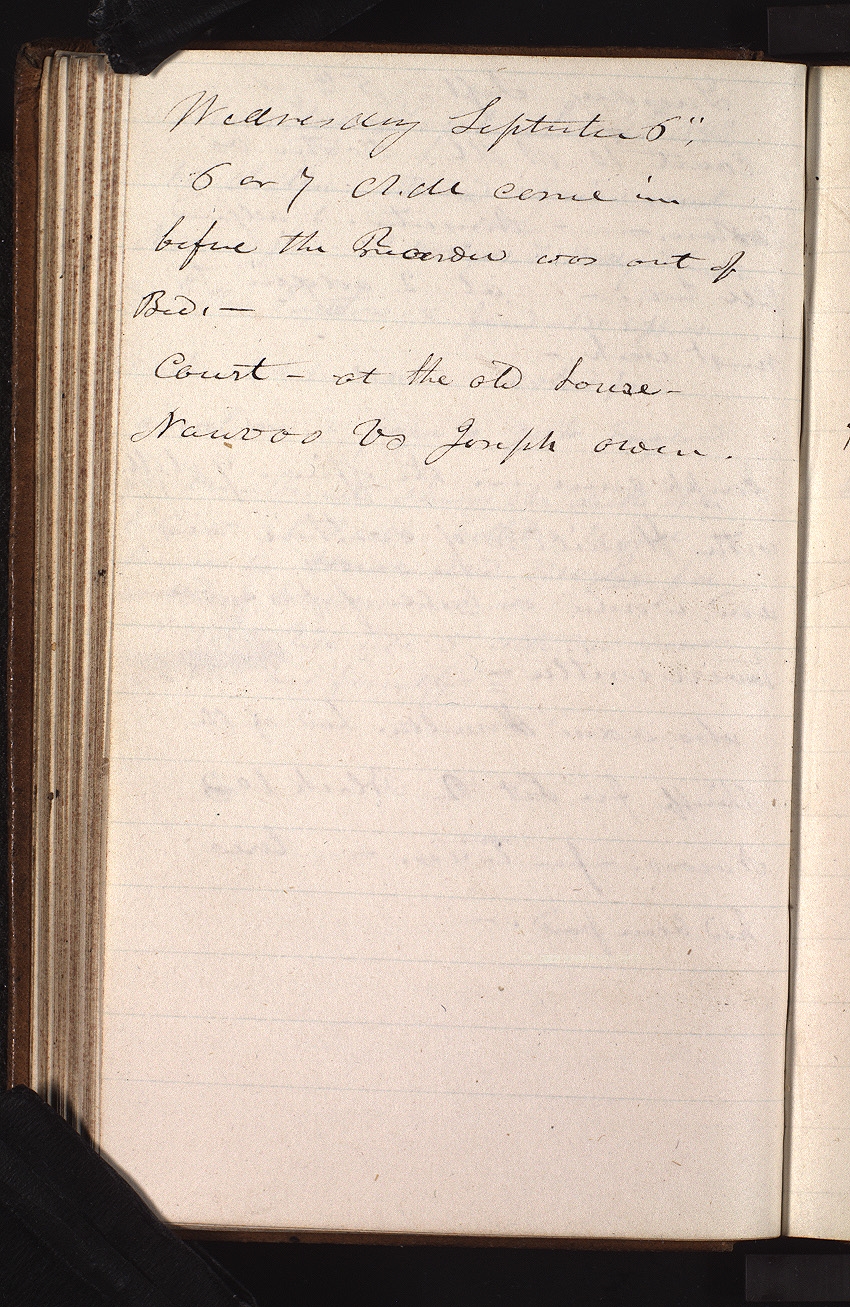 Wednesday September 6",
6 or 7 A.M. came in
before the Recorder was out of
Bed.—
Court - at the old house-
Nauvoo vs Joseph owen.